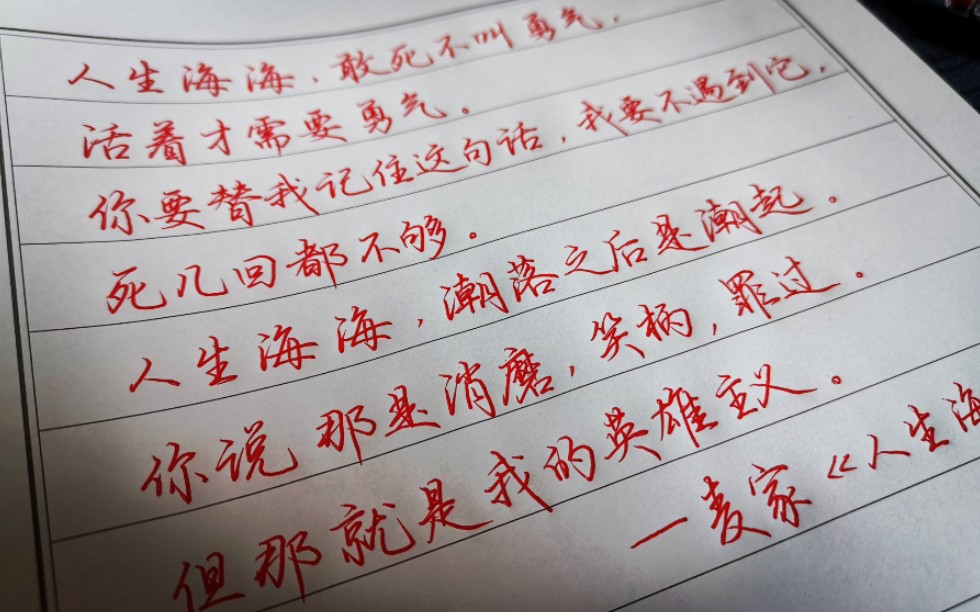 人生海海，敢死不叫勇气，
活着才需要勇气。
你要替我记住这句话，我要不遇到它，
死几回都不够。
人生海海，潮落之后是潮起。
你说那是消磨，笑柄，罪过。
但那就是我的英雄主义。
—麦家《人生海